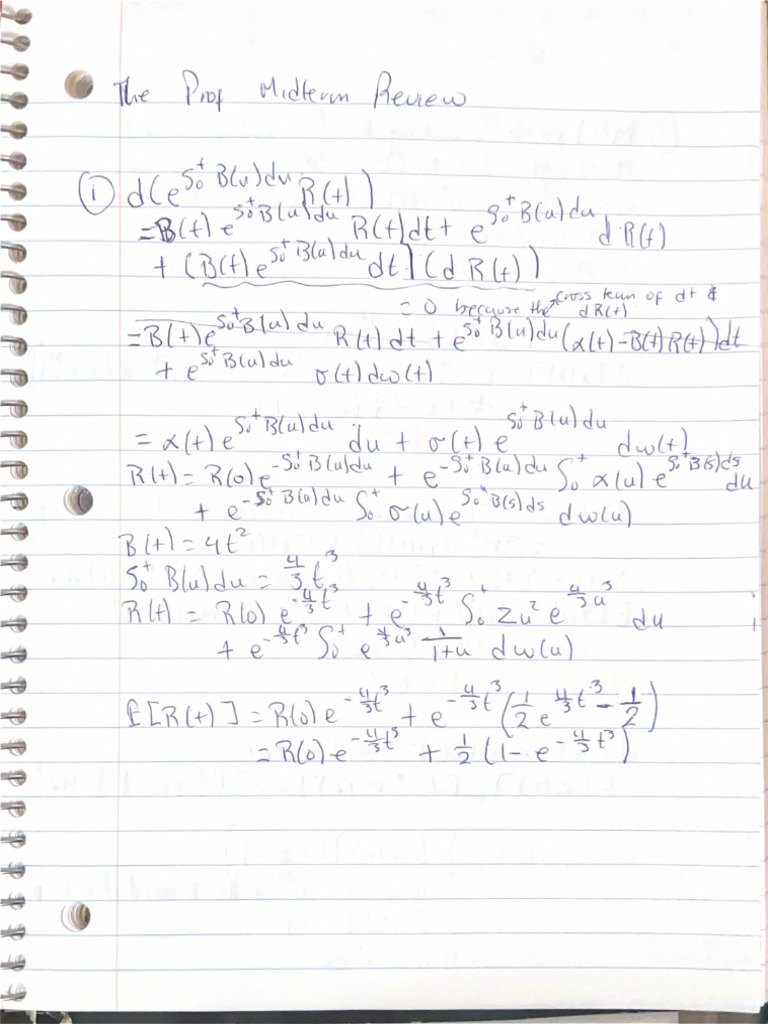 The Prof Midterm Review
① d(e^{∫₀ᵗ B(u)du} R(t))
= B(t) e^{∫₀ᵗ B(u)du} R(t)dt + e^{∫₀ᵗ B(u)du} dR(t)
+ (B(t) e^{∫₀ᵗ B(u)du} dt)(dR(t))
= 0 because the cross term of dt & dR(t)
= B(t) e^{∫₀ᵗ B(u)du} R(t)dt + e^{∫₀ᵗ B(u)du} (α(t) - B(t)R(t))dt
+ e^{∫₀ᵗ B(u)du} σ(t)dw(t)
= α(t) e^{∫₀ᵗ B(u)du} du + σ(t) e^{∫₀ᵗ B(u)du} dw(t)
R(t) = R(0) e^{-∫₀ᵗ B(u)du} + e^{-∫₀ᵗ B(u)du} ∫₀ᵗ α(u) e^{∫₀ᵗ B(s)ds} du
+ e^{-∫₀ᵗ B(u)du} ∫₀ᵗ σ(u) e^{∫₀ᵘ B(s)ds} dw(u)
B(t) = 4t²
∫₀ᵗ B(u)du = 4/3 t³
R(t) = R(0) e^{-4/3 t³} + e^{-4/3 t³} ∫₀ᵗ 2u² e^{4/3 u³} du
+ e^{-4/3 t³} ∫₀ᵗ e^{4/3 u³} 1/(1+u) dw(u)
E[R(t)] = R(0) e^{-4/3 t³} + e^{-4/3 t³} (1/2 e^{4/3 t³} - 1/2)
= R(0) e^{-4/3 t³} + 1/2 (1 - e^{-4/3 t³})